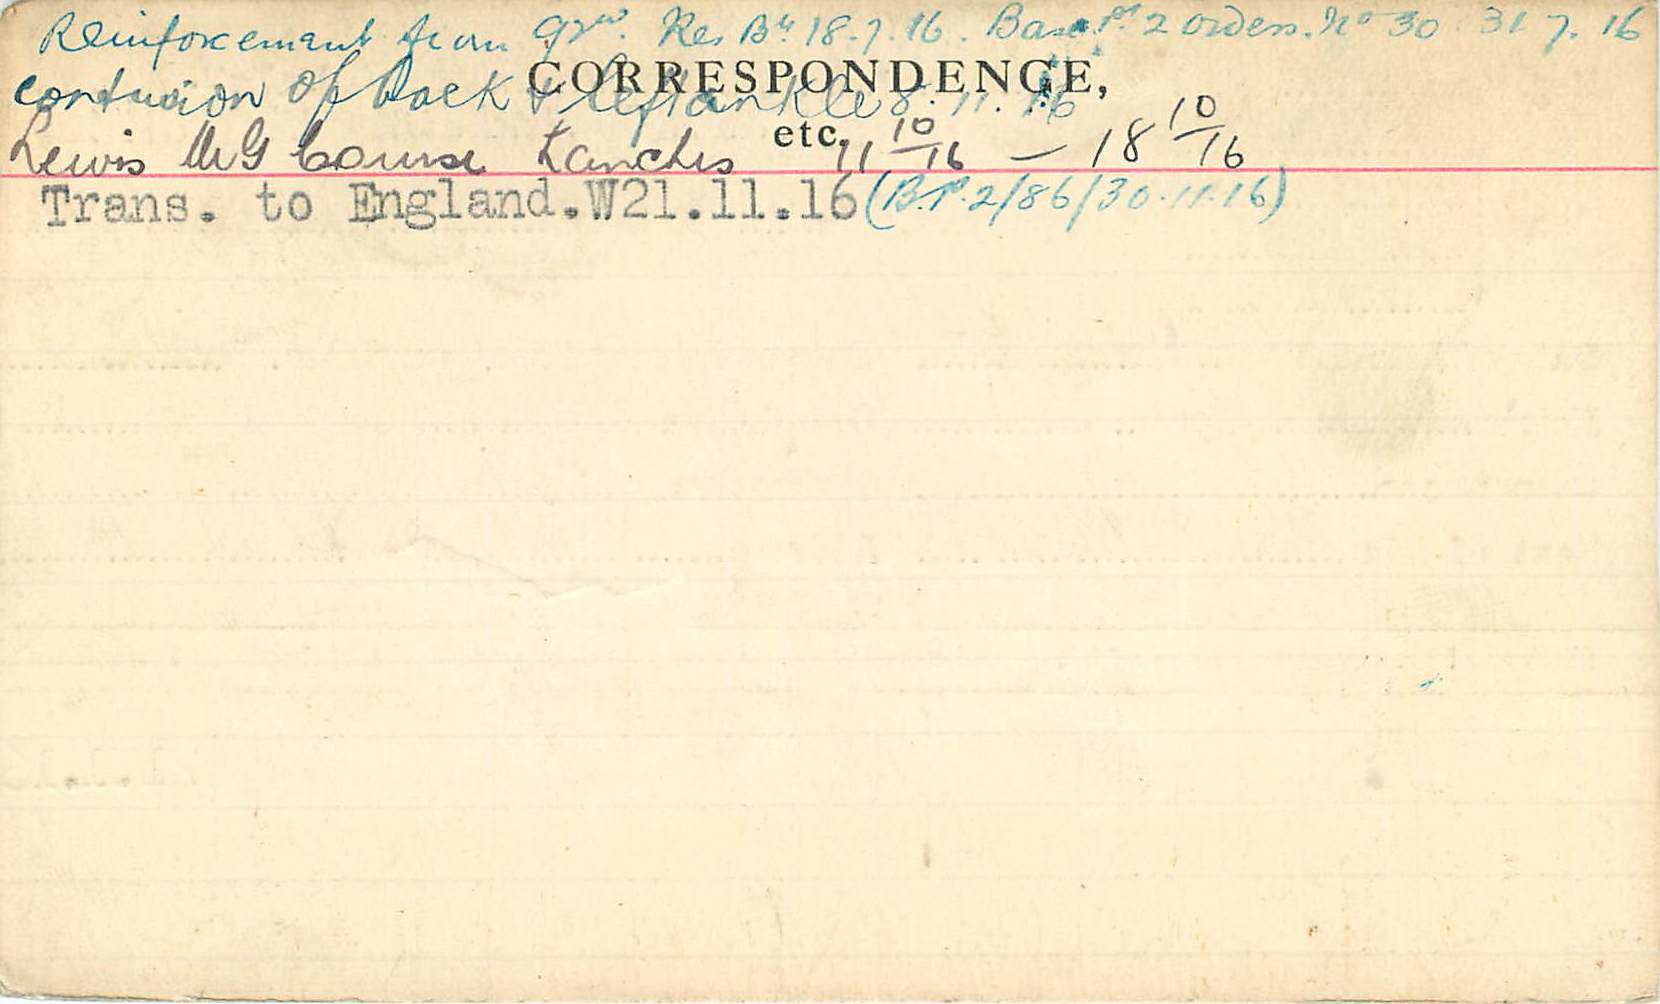 Reinforcement from Grn. Res Bn 18.7.16. Base Pt 2 orders. No 30. 31 7. 16
CORRESPONDENCE,
contusion of back & left ankle 8.11.16
etc.
Lewis MG Course Lanchs 11 10/16 — 18 10/16
Trans. to England.W21.11.16 (B.Pt.2/86/30.11.16)